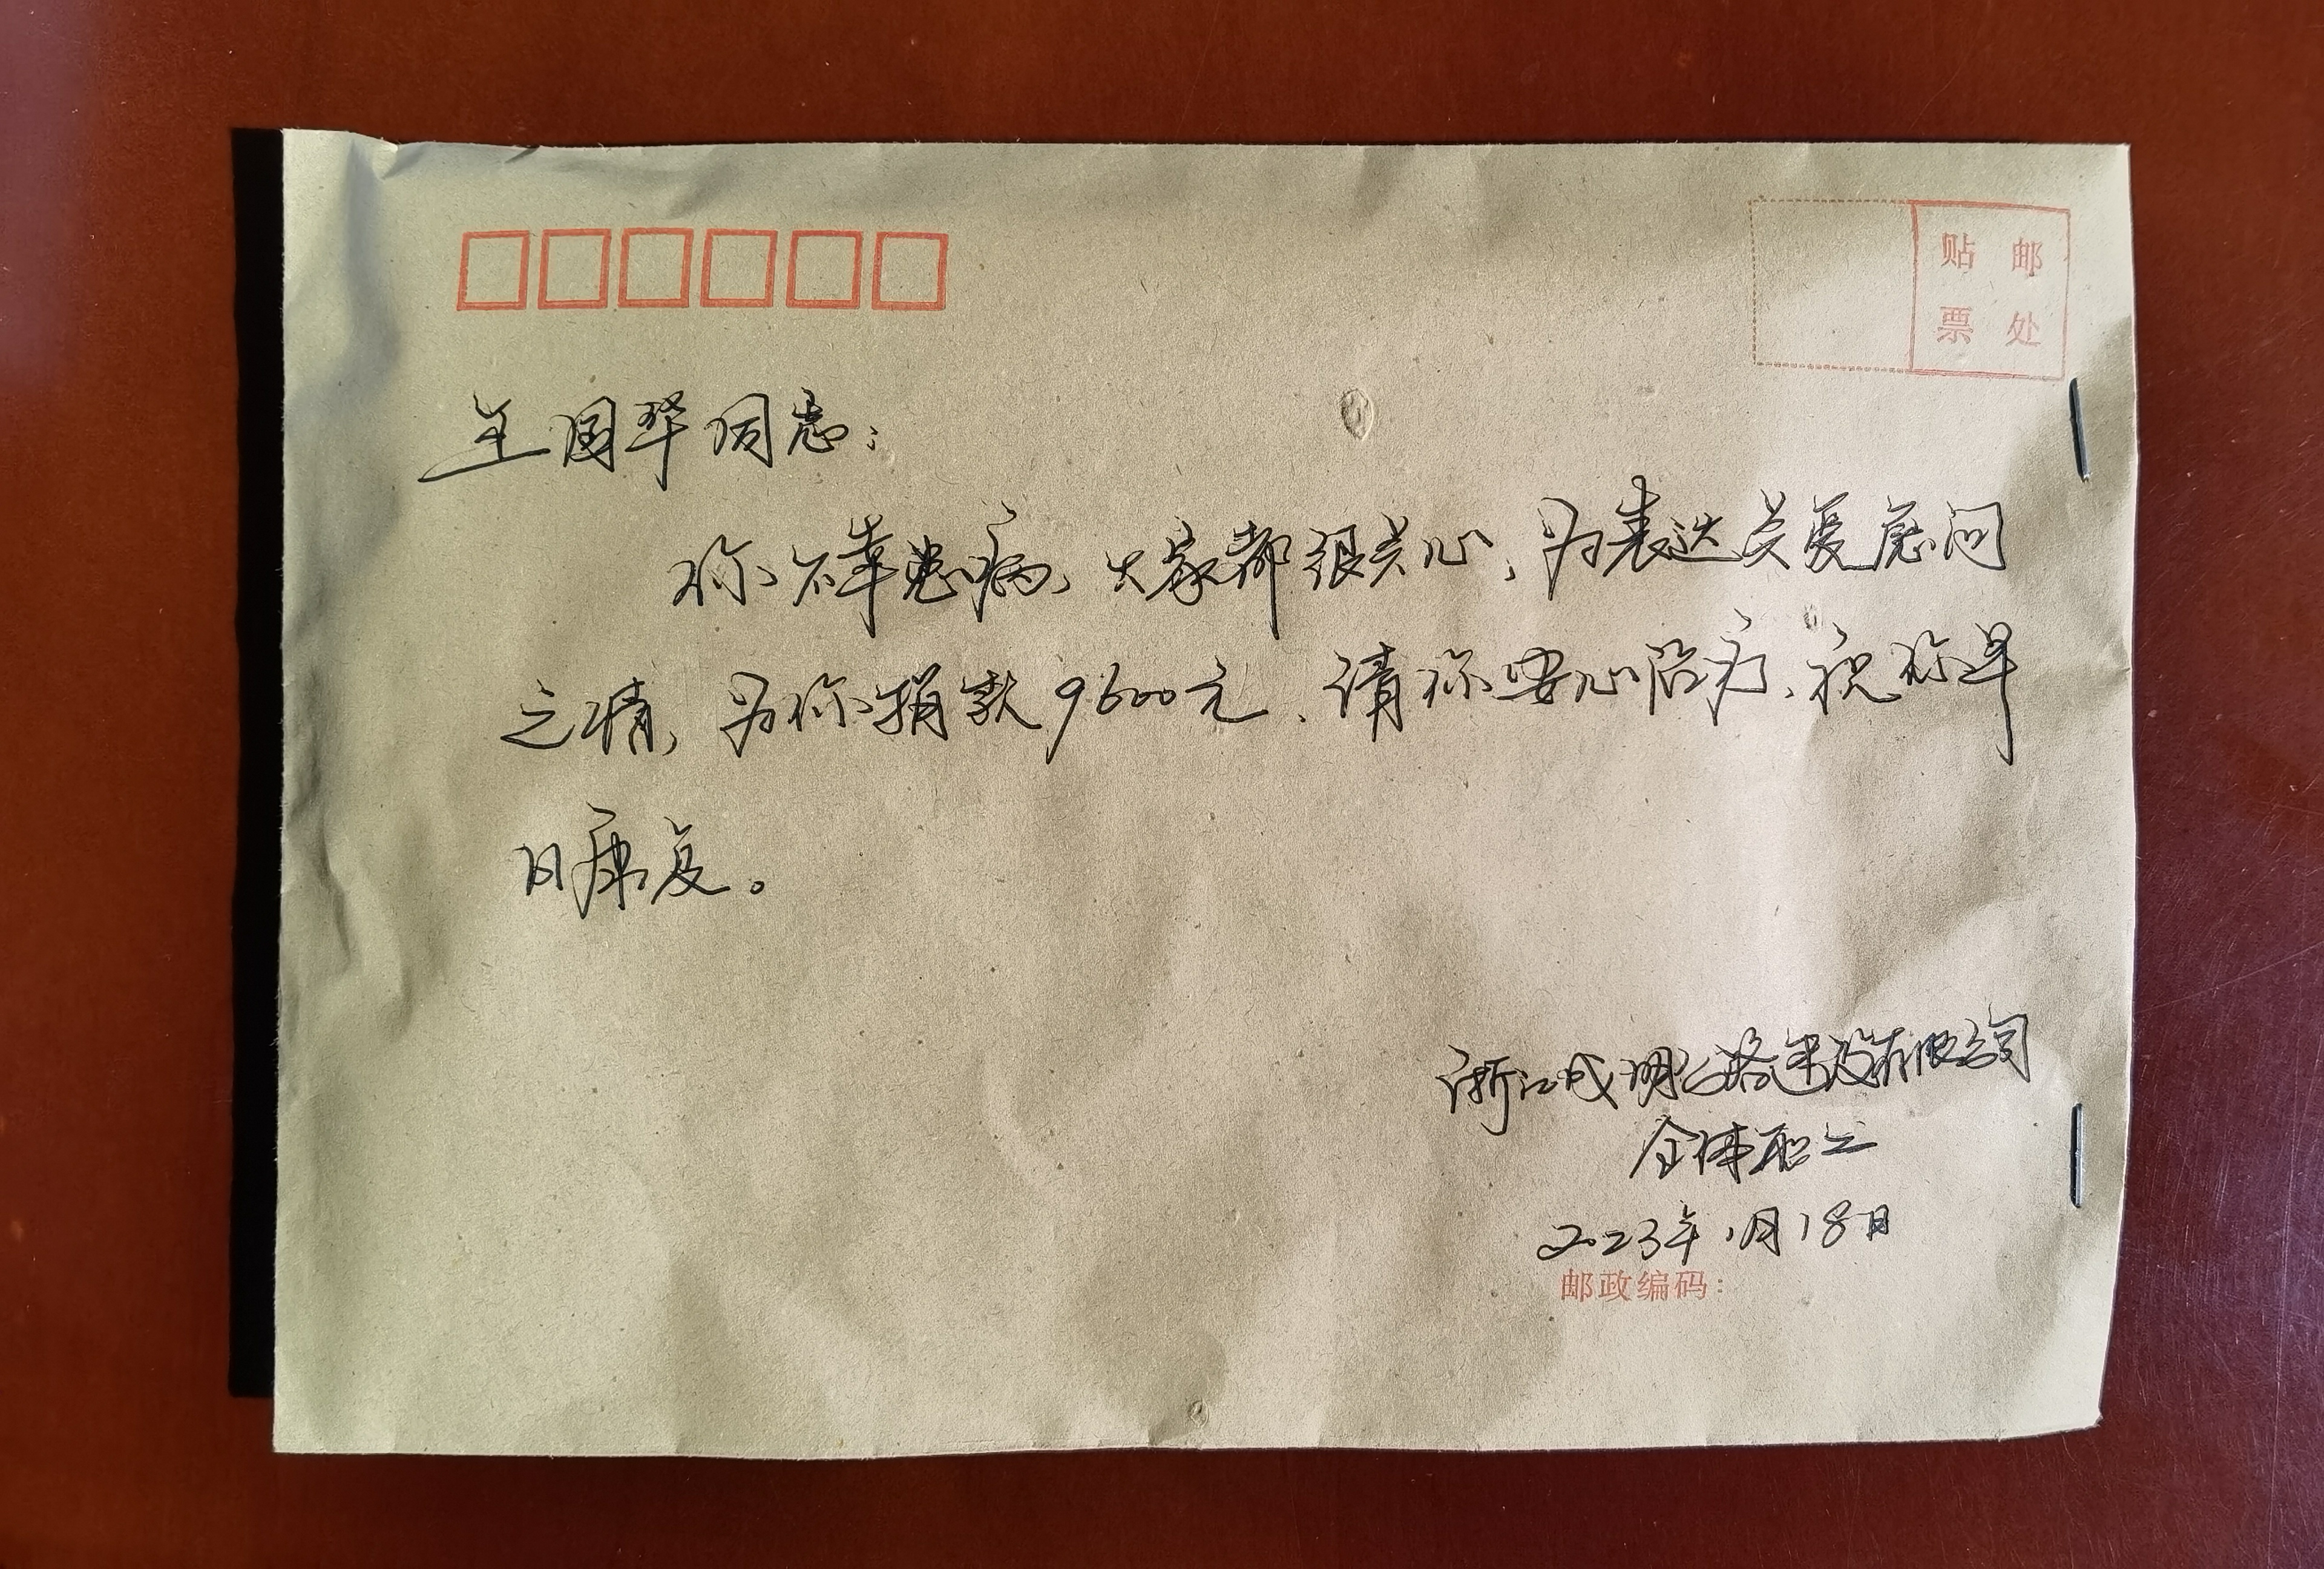 贴邮
票处
王国华同志：
你不幸患病、大家都很关心，为表达关爱慰问
之情，为你捐款9600元、请你安心治疗、祝你早
日康复。
浙江成明公路建设有限公司
全体职工
2023年1月18日
邮政编码：